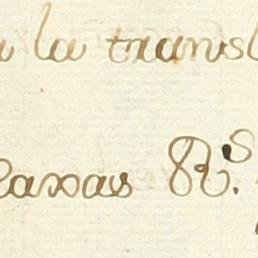 a la transl
laxas R.s